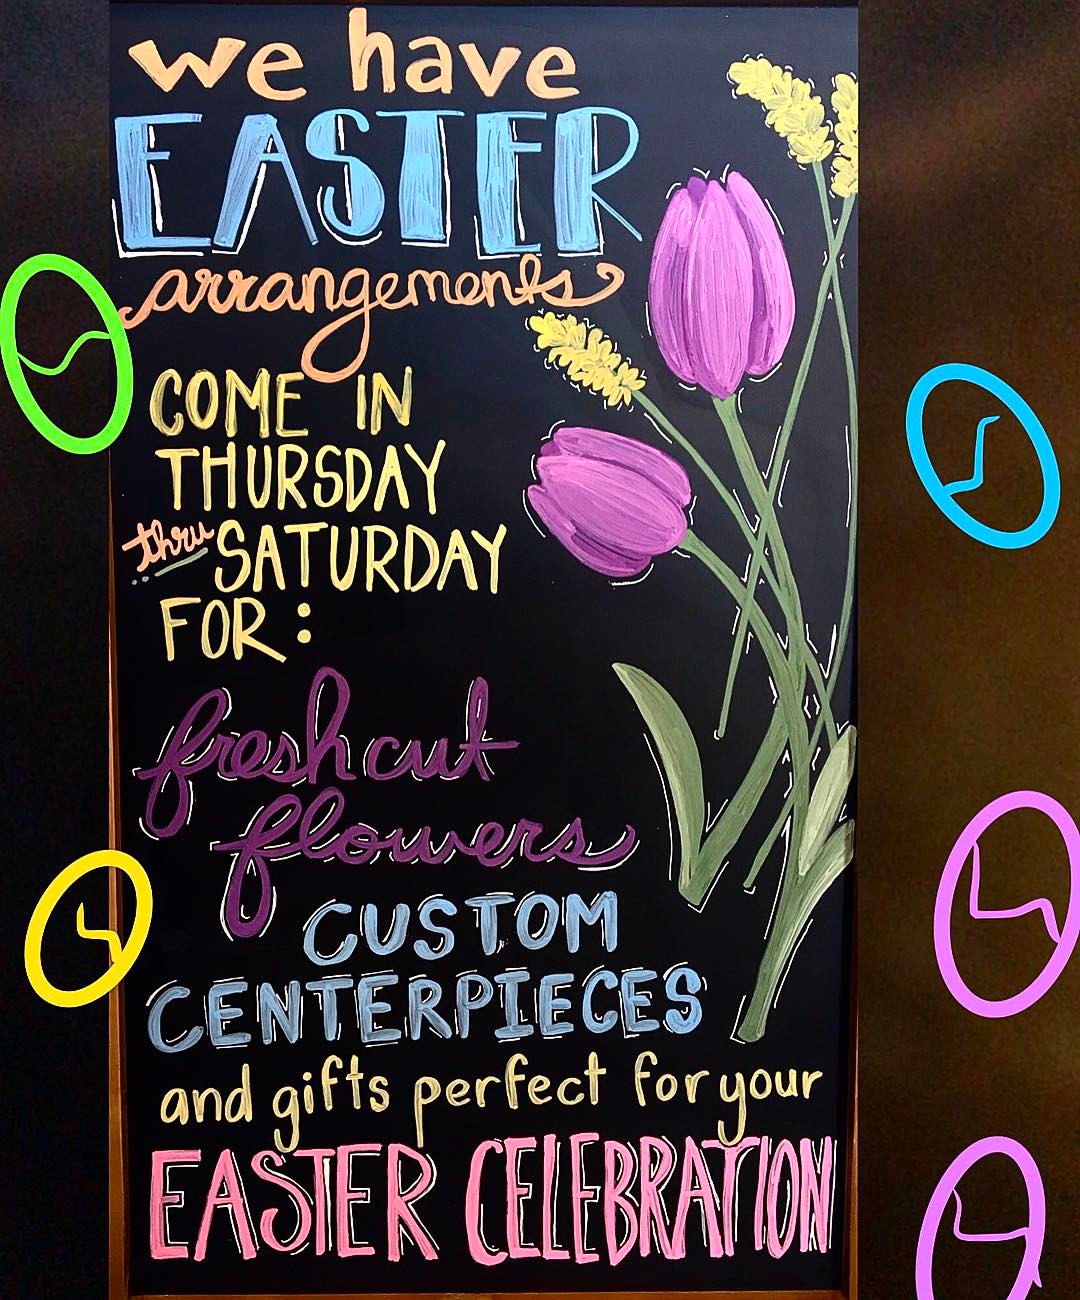 we have
EASTER
arrangements
COME IN
THURSDAY
thru SATURDAY
FOR:
fresh cut
flowers
CUSTOM
CENTERPIECES
and gifts perfect for your
EASTER CELEBRATION